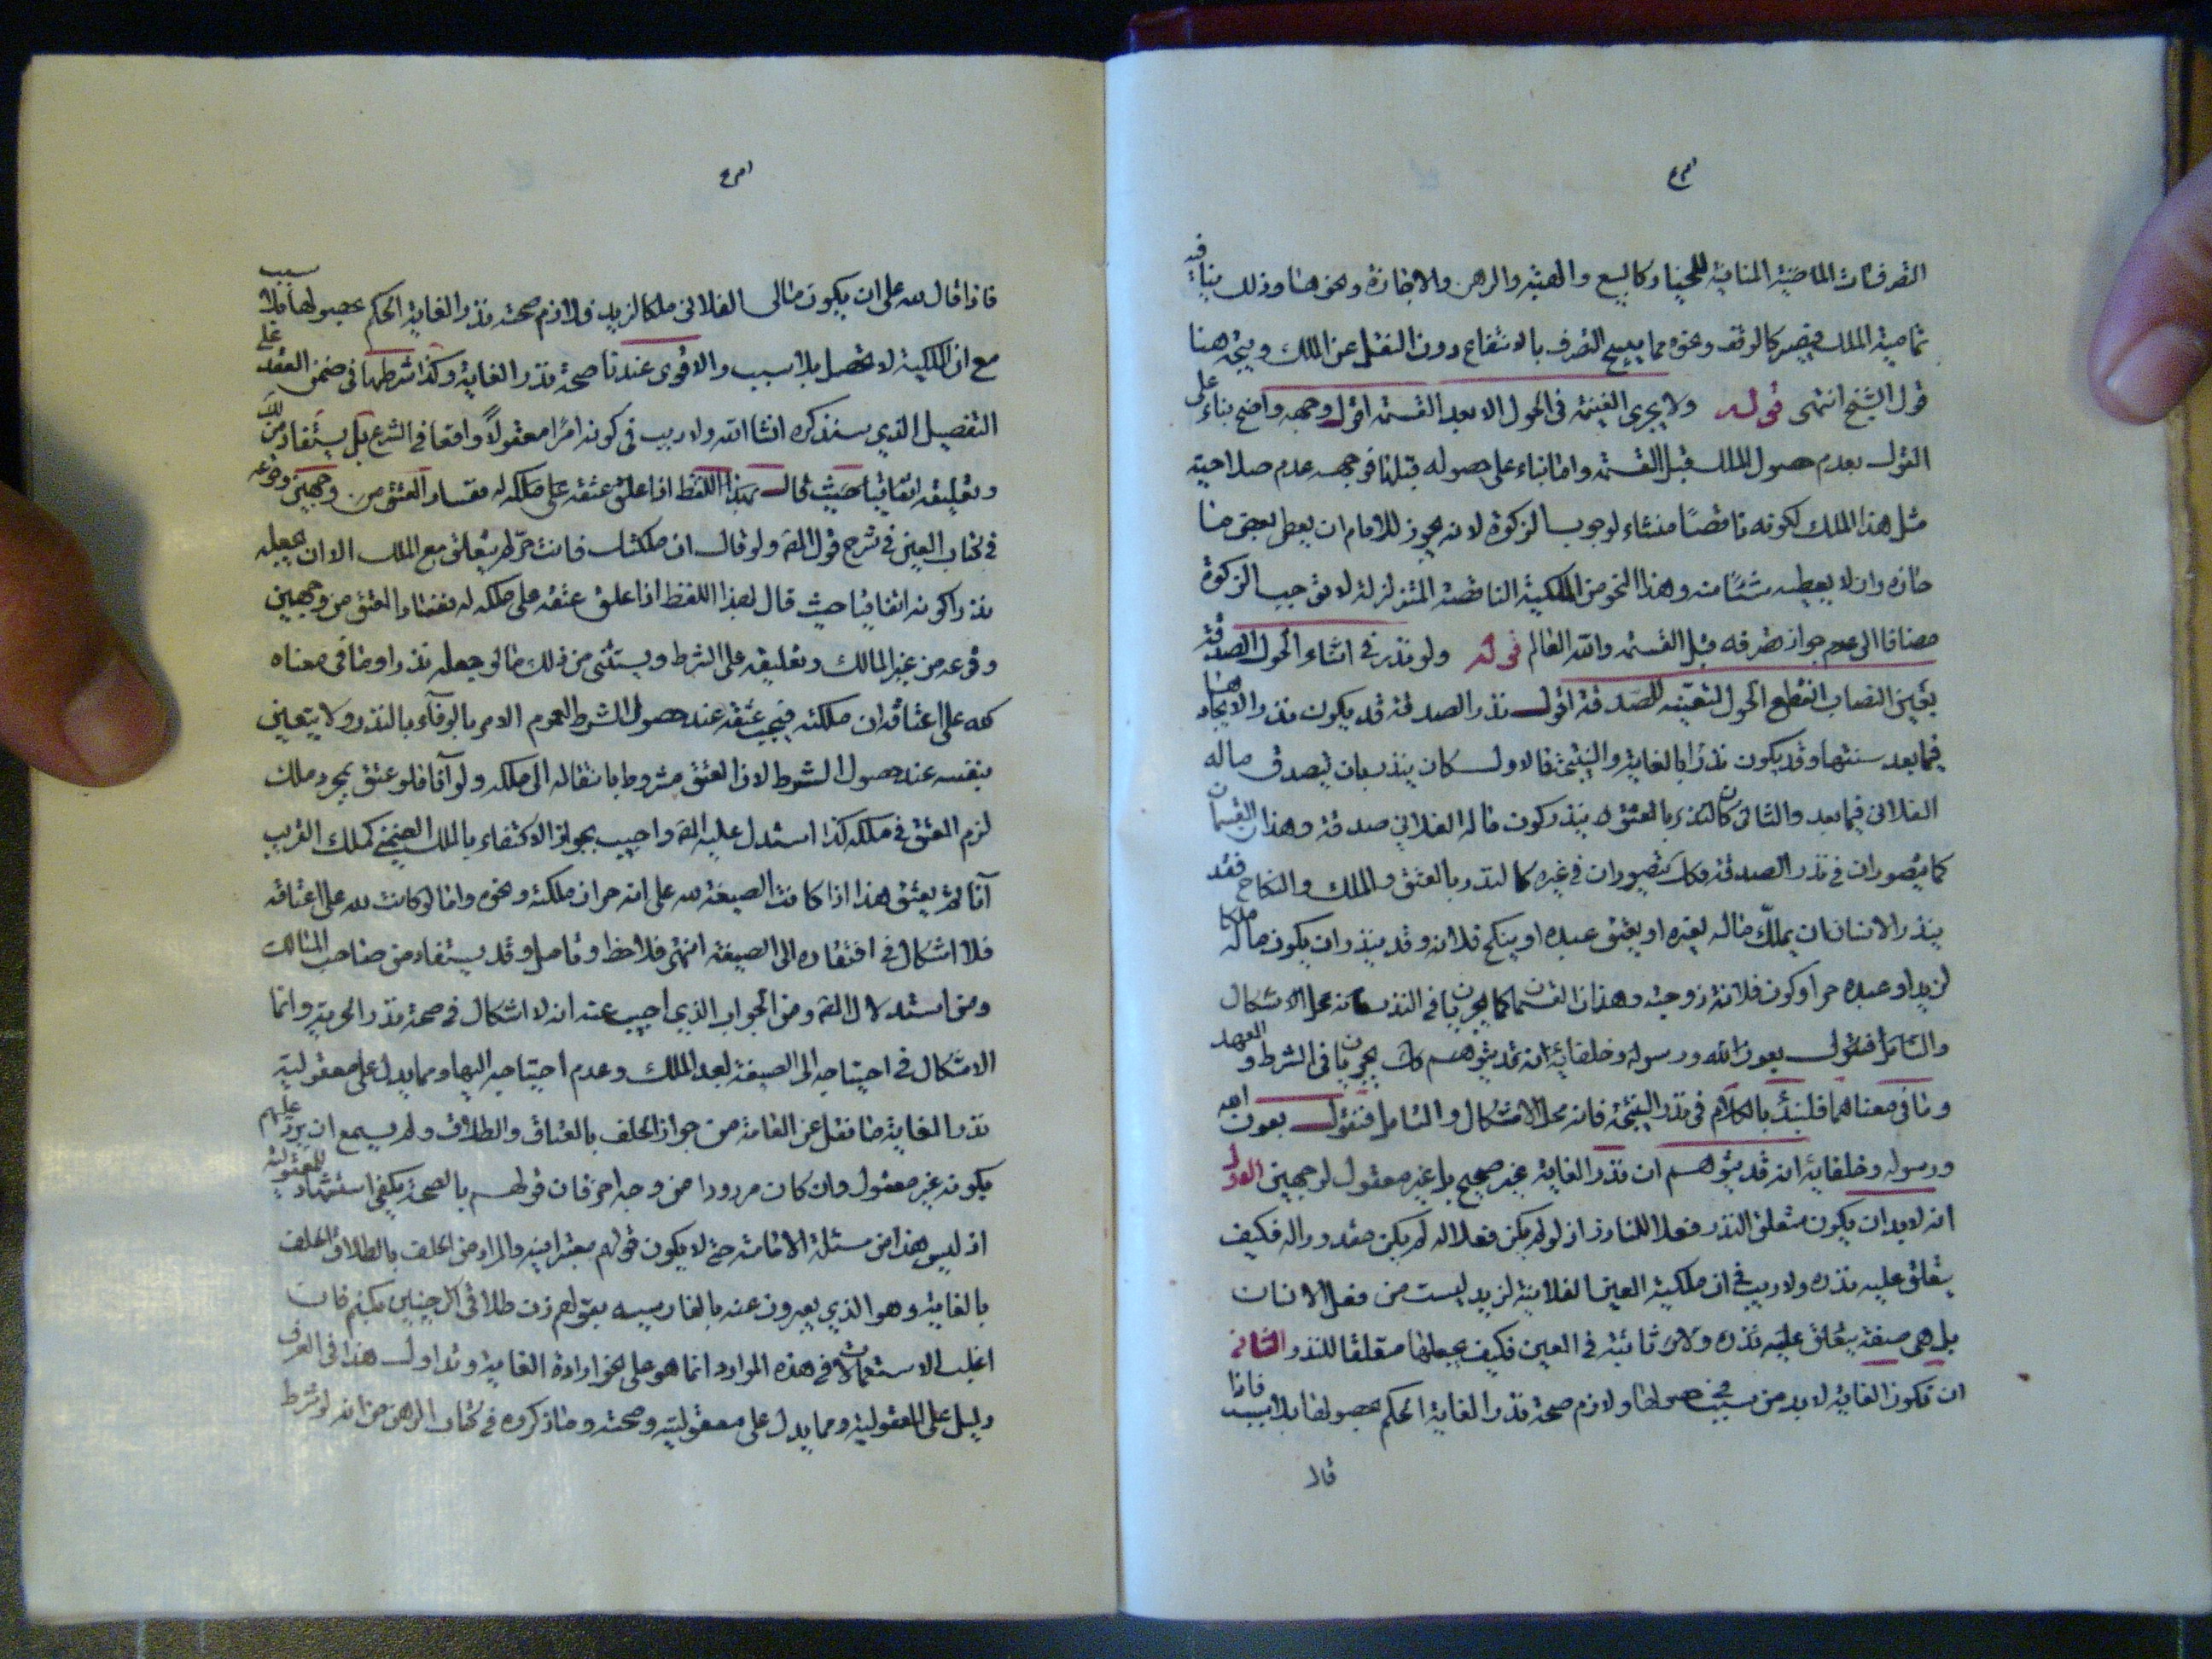 التصرفات الماضية المنافية للخيار كالبيع والهبة والرهن والاجارة ونحوها وذلك ينافيه
تمامية الملك فيصير كالوقف ونحوه مما يبيح التصرف بالانتفاع دون النقل عن الملك ويتجه هنا
قول الشيخ انتهى قوله ولا يجرى الغنيمة فى الحول الا بعد القسمة اقول وجهه واضح بناء على
القول بعدم حصول الملك قبل القسمة واما بناء على حصوله قبلها فوجهه عدم صلاحية
مثل هذا الملك لكونه ناقصا منشاء لوجوب الزكوة لانه يجوز للامام ان يعطى بعض منا
وان لا يعطيه شيئا منه وهذا النحو من الملكية الناقصة المتزلزلة لا توجب الزكوة
مضافا الى عدم جواز تصرفه قبل القسمة والله العالم قوله ولو نذر فى اثناء الحول الصدقة
بعين النصاب انقطع الحول لتعينه للصدقة اقول نذر الصدقة قد يكون نذر الايجادها
فيما بعد سنتها وقد يكون نذرا بالغاية والنتيجة فالاول كان ينذر بان يتصدق ماله
الفلانى فيما بعد والثانى كان ينذر كون ماله الفلانى صدقة وهذان القسمان
كما يتصوران فى نذر الصدقة فكك يتصوران فى غيره كالنذر بالعتق والملك والنكاح فقد
ينذر الانسان ان يملك ماله لغيره او يعتق عبده او ينكح فلانه وقد ينذر ان يكون ماله ملكا
لزيد او عبده حرا وكون فلانة زوجته وهذان القسمان كما يجريان فى النذر فانه محل الاشكال
والتامل فنقول بعون الله ورسوله وخلفائه انه قد يتوهم كك يجريان فى الشرط والعهد
وما فى معناهما فلنبدء بالكلام فى نذر النتيجة فانه محل الاشكال والتامل فنقول بعون الله
ورسوله وخلفائه انه قد يتوهم ان نذر الغاية غير صحيح بل غير معقول لوجهين الاول
انه لابد ان يكون متعلق النذر فعلا للناذر اذ لو لم يكن فعلا له لم يكن مقدورا له فكيف
يتعلق عليه نذره ولا ريب فى ان ملكية العين الفلانية لزيد ليست من فعل الانسان
بل هى صفة يتعلق عليه نذره ثابتة فى العين فكيف يجعلها متعلقا للنذر الثانى
ان تكون الغاية لابد من سبب فى حصولها ولازم صحة نذر الغاية الحكم بحصولها بلا سبب فاذا
قال
فاذا قال لله على ان يكون مالى الفلانى ملكا لزيد فلازم صحة نذر الغاية الحكم بحصولها بلا سبب
مع ان الملكية لا تحصل بلا سبب والاقوى عندنا صحة نذر الغاية وكذا شرطها فى ضمن العقد على
التفصيل الذي سنذكره انشاء الله ولا ريب فى كونه امرا معقولا واقعا فى الشرع بل يستفاد من ذلك
وتعليقه اتفاقيا حيث قال بهذا اللفظ اذا علق عتقه على ملكه له ففساد العتق من وجهين وقوعه
فى كتاب العين فى شرح قول المص ولو قال ان ملكتك فانت حر لم يتعلق مع الملك الا ان يجعله
نذرا كونه اتفاقيا حيث قال بهذا اللفظ اذا علق عتقه على ملكه له ففساد العتق من وجهين
وقوعه من غير المالك وتعليقه على الشرط ويستثنى من ذلك ما لو جعله نذرا وما فى معناه
كلله على اعتاقه ان ملكته فيجب عتقه عند حصول الشرط لعموم الامر بالوفاء بالنذر ولا يتعين
بنفسه عند حصول الشرط لان العتق مشروط بانتقاله الى ملكه ولو آنا فلو عتق بمجرد ملك
لزم العتق فى ملكه كذا استدل عليه المص واجيب بجواز الاكتفاء بالملك الضمنى كملك القريب
آنا ثم يعتق هذا اذا كانت الصيغة لله على انه حر ان ملكته ونحوه واما لو كانت لله على اعتاقه
فلا اشكال فى افتقاره الى الصيغة انتهى فلاحظ وتامل وقد يستفاد من صاحب المسالك
ومن استدلال المص ومن الجواب الذي اجيب عنه انه لا اشكال فى صحة نذر الحرية وانما
الاشكال فى احتياجه الى الصيغة بعد الملك وعدم احتياجه اليها ومما يدل على معقولية
نذر الغاية ما نقل عن العامة من جواز الحلف بالعتاق والطلاق ولم يسمع ان يرد عليهم
بكونه غير معقول وان كان مردودا من وجه اخر فان قولهم بالصحة يكفى استشهادا للمعقولية
اذ ليس هذا من مسئلة الامامة حتى لا يكون قولهم معتبرا فيه والمراد من الحلف بالطلاق الحلف
بالغاية وهو الذي يعبرون عنه بالفارسيه بقولهم زن طلاقى اگر چنين بكنم فان
اغلب الاستعمالات فى هذه الموارد انما هو على نحو ارادة الغاية وتداول هذا فى العرف
دليل على المعقولية ومما يدل على معقوليته وصحته وما ذكروه فى كتاب الرهن من انه لو شرط